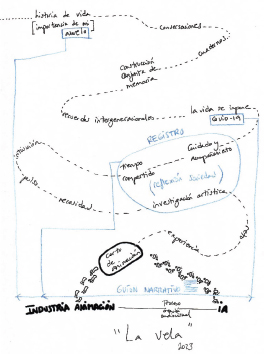 historia de vida
[importancia de mi
abuela
conversaciones
cuadernos
construcción
conjunta de
memoria
recuerdos intergeneracionales
la vida se impone
COVID-19
REGISTRO
intuición
tiempo
compartido
Cuidado y
acompañamiento
(reflexión social)
pulso
necesidad
investigación artística
experiencia
vida
Corto
de
animación
GUION NARRATIVO
INDUSTRIA ANIMACIÓN
Proceso
audiovisual
IA
"La vela"
2023